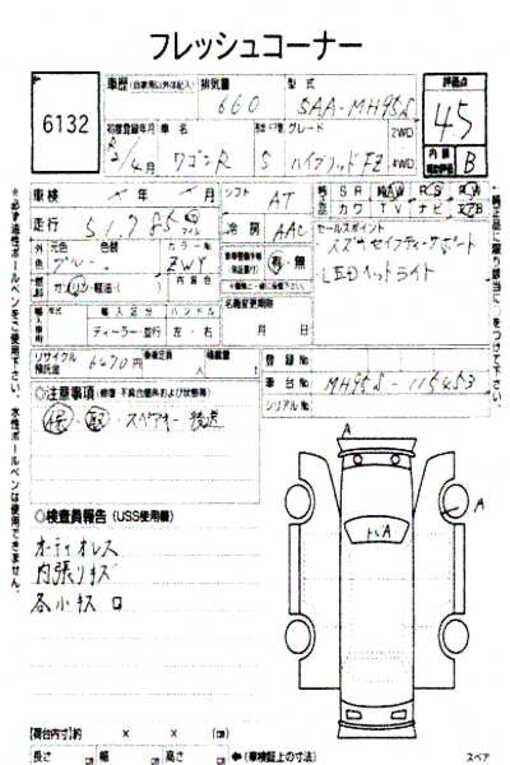 フレッシュコーナー
6132
車歴 (自家用以外は記入) 排気量 型式 評価点
660 5AA-MH95S 4.5
初度登録年月 車名 グレード 2WD 4WD 内装 補助評価 B
R2/4月 ワゴンR 5 ハイブリッドFZ
車検 年 月 シフト AT SR AW PS PW
走行 51,785 km マイル 冷房 AAC カワ TV ナビ エアB
外色 元色 色替 カラーNo セールスポイント
ブルー ZWY スズキセイフティーサポート
LEDヘッドライト
燃料 ガソリン・軽油・( ) 内装色 有・無
輸入車用 年式 輸入区分 ハンドル 名義変更期限
ディーラー・並行 左・右 月 日
リサイクル預託金 6470円 乗車定員 人 積載量 t 登録No
車台No MH95S-115453
シリアルNo
◎注意事項 (修復・不具合箇所および状態等)
保・取・スペアキー 後送
A
A
トバA
◎検査員報告 (USS使用欄)
オーディオレス
内張リキズ
各小キズ
【荷台内寸】約 × × (cm)
長さ cm 幅 cm 高さ cm ←(車検証上の寸法)
スペア
※必ず油性ボールペンをご使用下さい。水性ボールペンは使用できません。